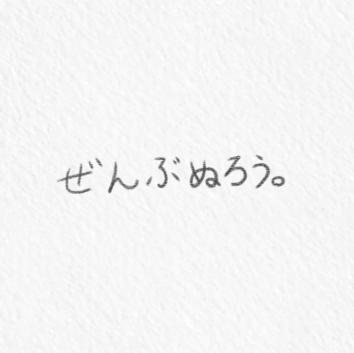 ぜんぶぬろう。